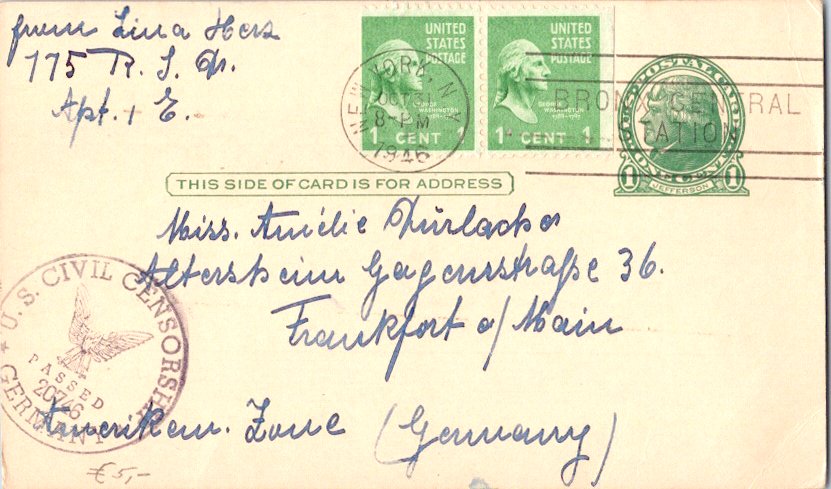 from Lina Herz
775 R. S. Dr.
Apt. 1 E.
UNITED
STATES
POSTAGE
GEORGE
WASHINGTON
1 CENT 1
UNITED
STATES
POSTAGE
GEORGE
WASHINGTON
1789-1797
1 CENT 1
NEW YORK, N.Y.
OCT
8-PM
1946
BRONX CENTRAL
STATION
U.S. POSTAL CARD
ONE CENT
1 JEFFERSON 1
THIS SIDE OF CARD IS FOR ADDRESS
Miss. Amélie Dürlacher
Altersheim Gagernstraße 36.
Frankfort a/Main
Amerikan. Zone (Germany)
U.S. CIVIL CENSORSHIP
PASSED
20746
GERMANY
€5,-